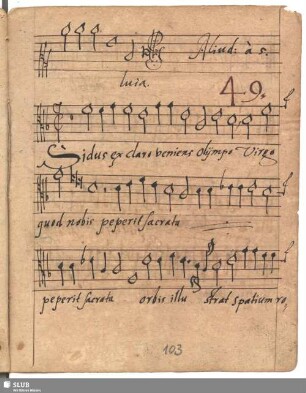 Aliud: à 5.
luia.
49.
Sidus ex claro veniens Olympo Virgo
quod nobis peperit sacrata
peperit sacrata orbis illu strat spatium ro,
103
SLUB